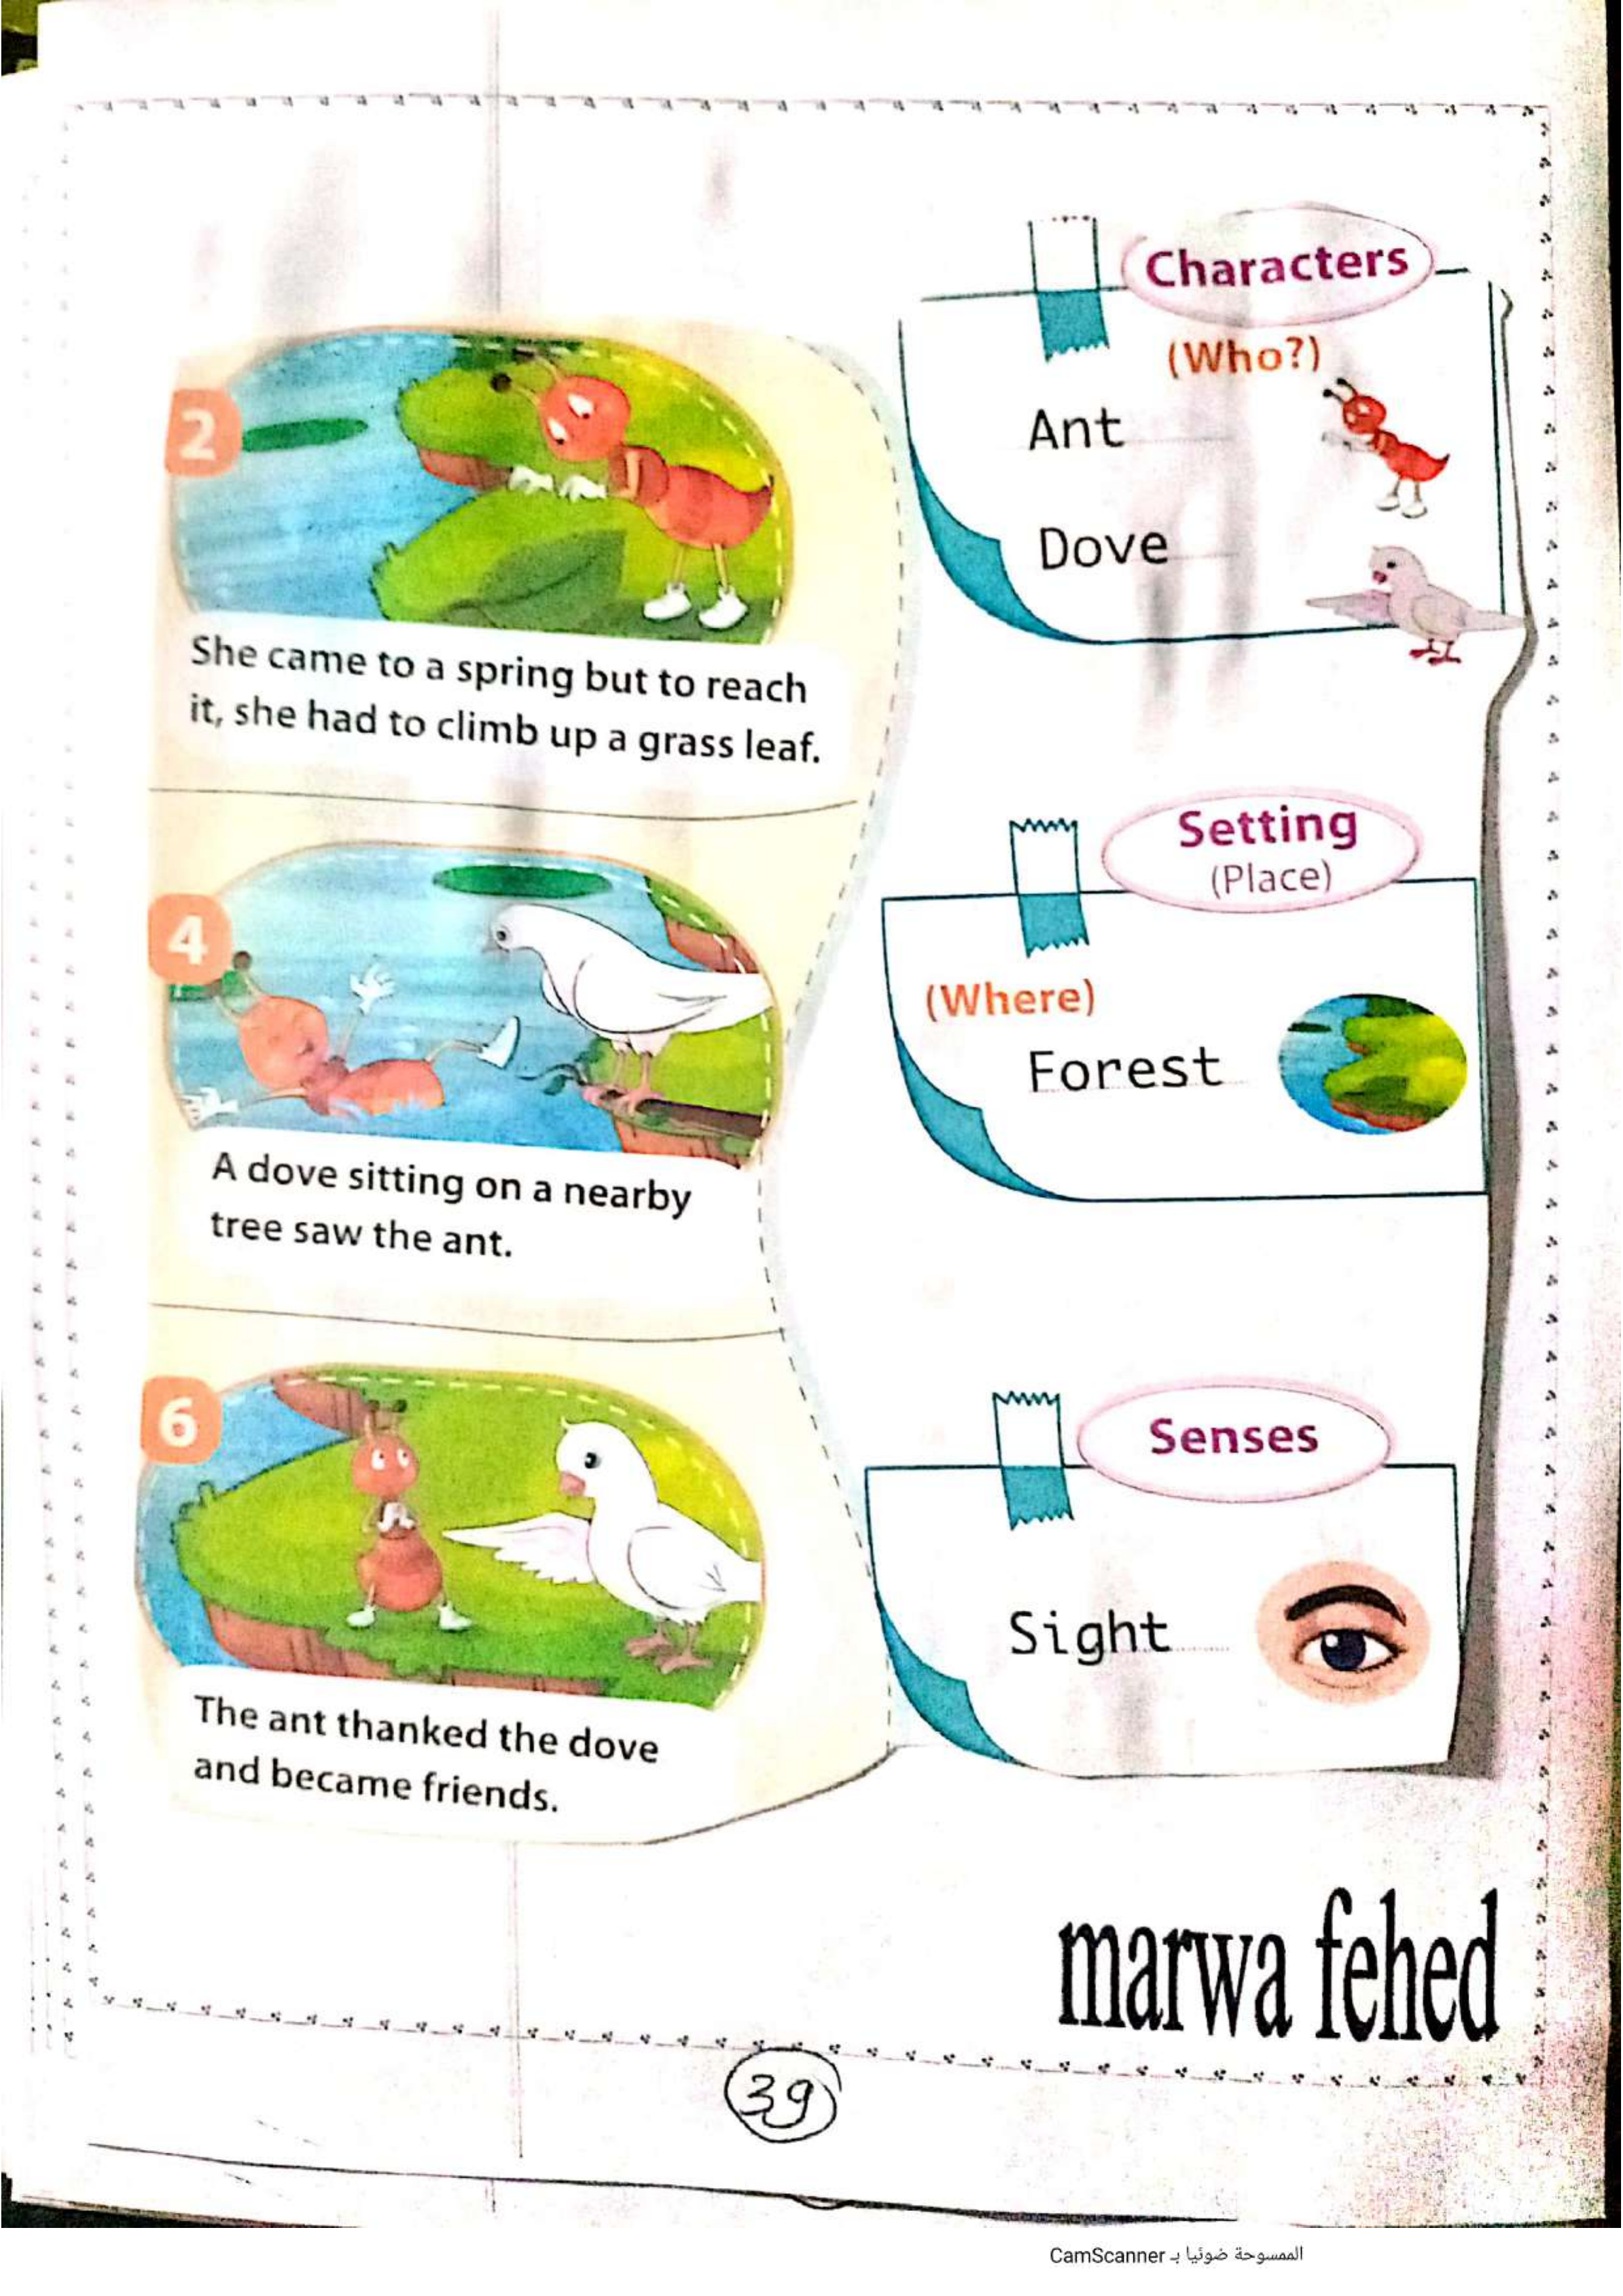 2
She came to a spring but to reach
it, she had to climb up a grass leaf.
4
A dove sitting on a nearby
tree saw the ant.
6
The ant thanked the dove
and became friends.
Characters
(Who?)
Ant
Dove
Setting
(Place)
(Where)
Forest
Senses
Sight
marwa fehed
39
الممسوحة ضوئيا بـ CamScanner